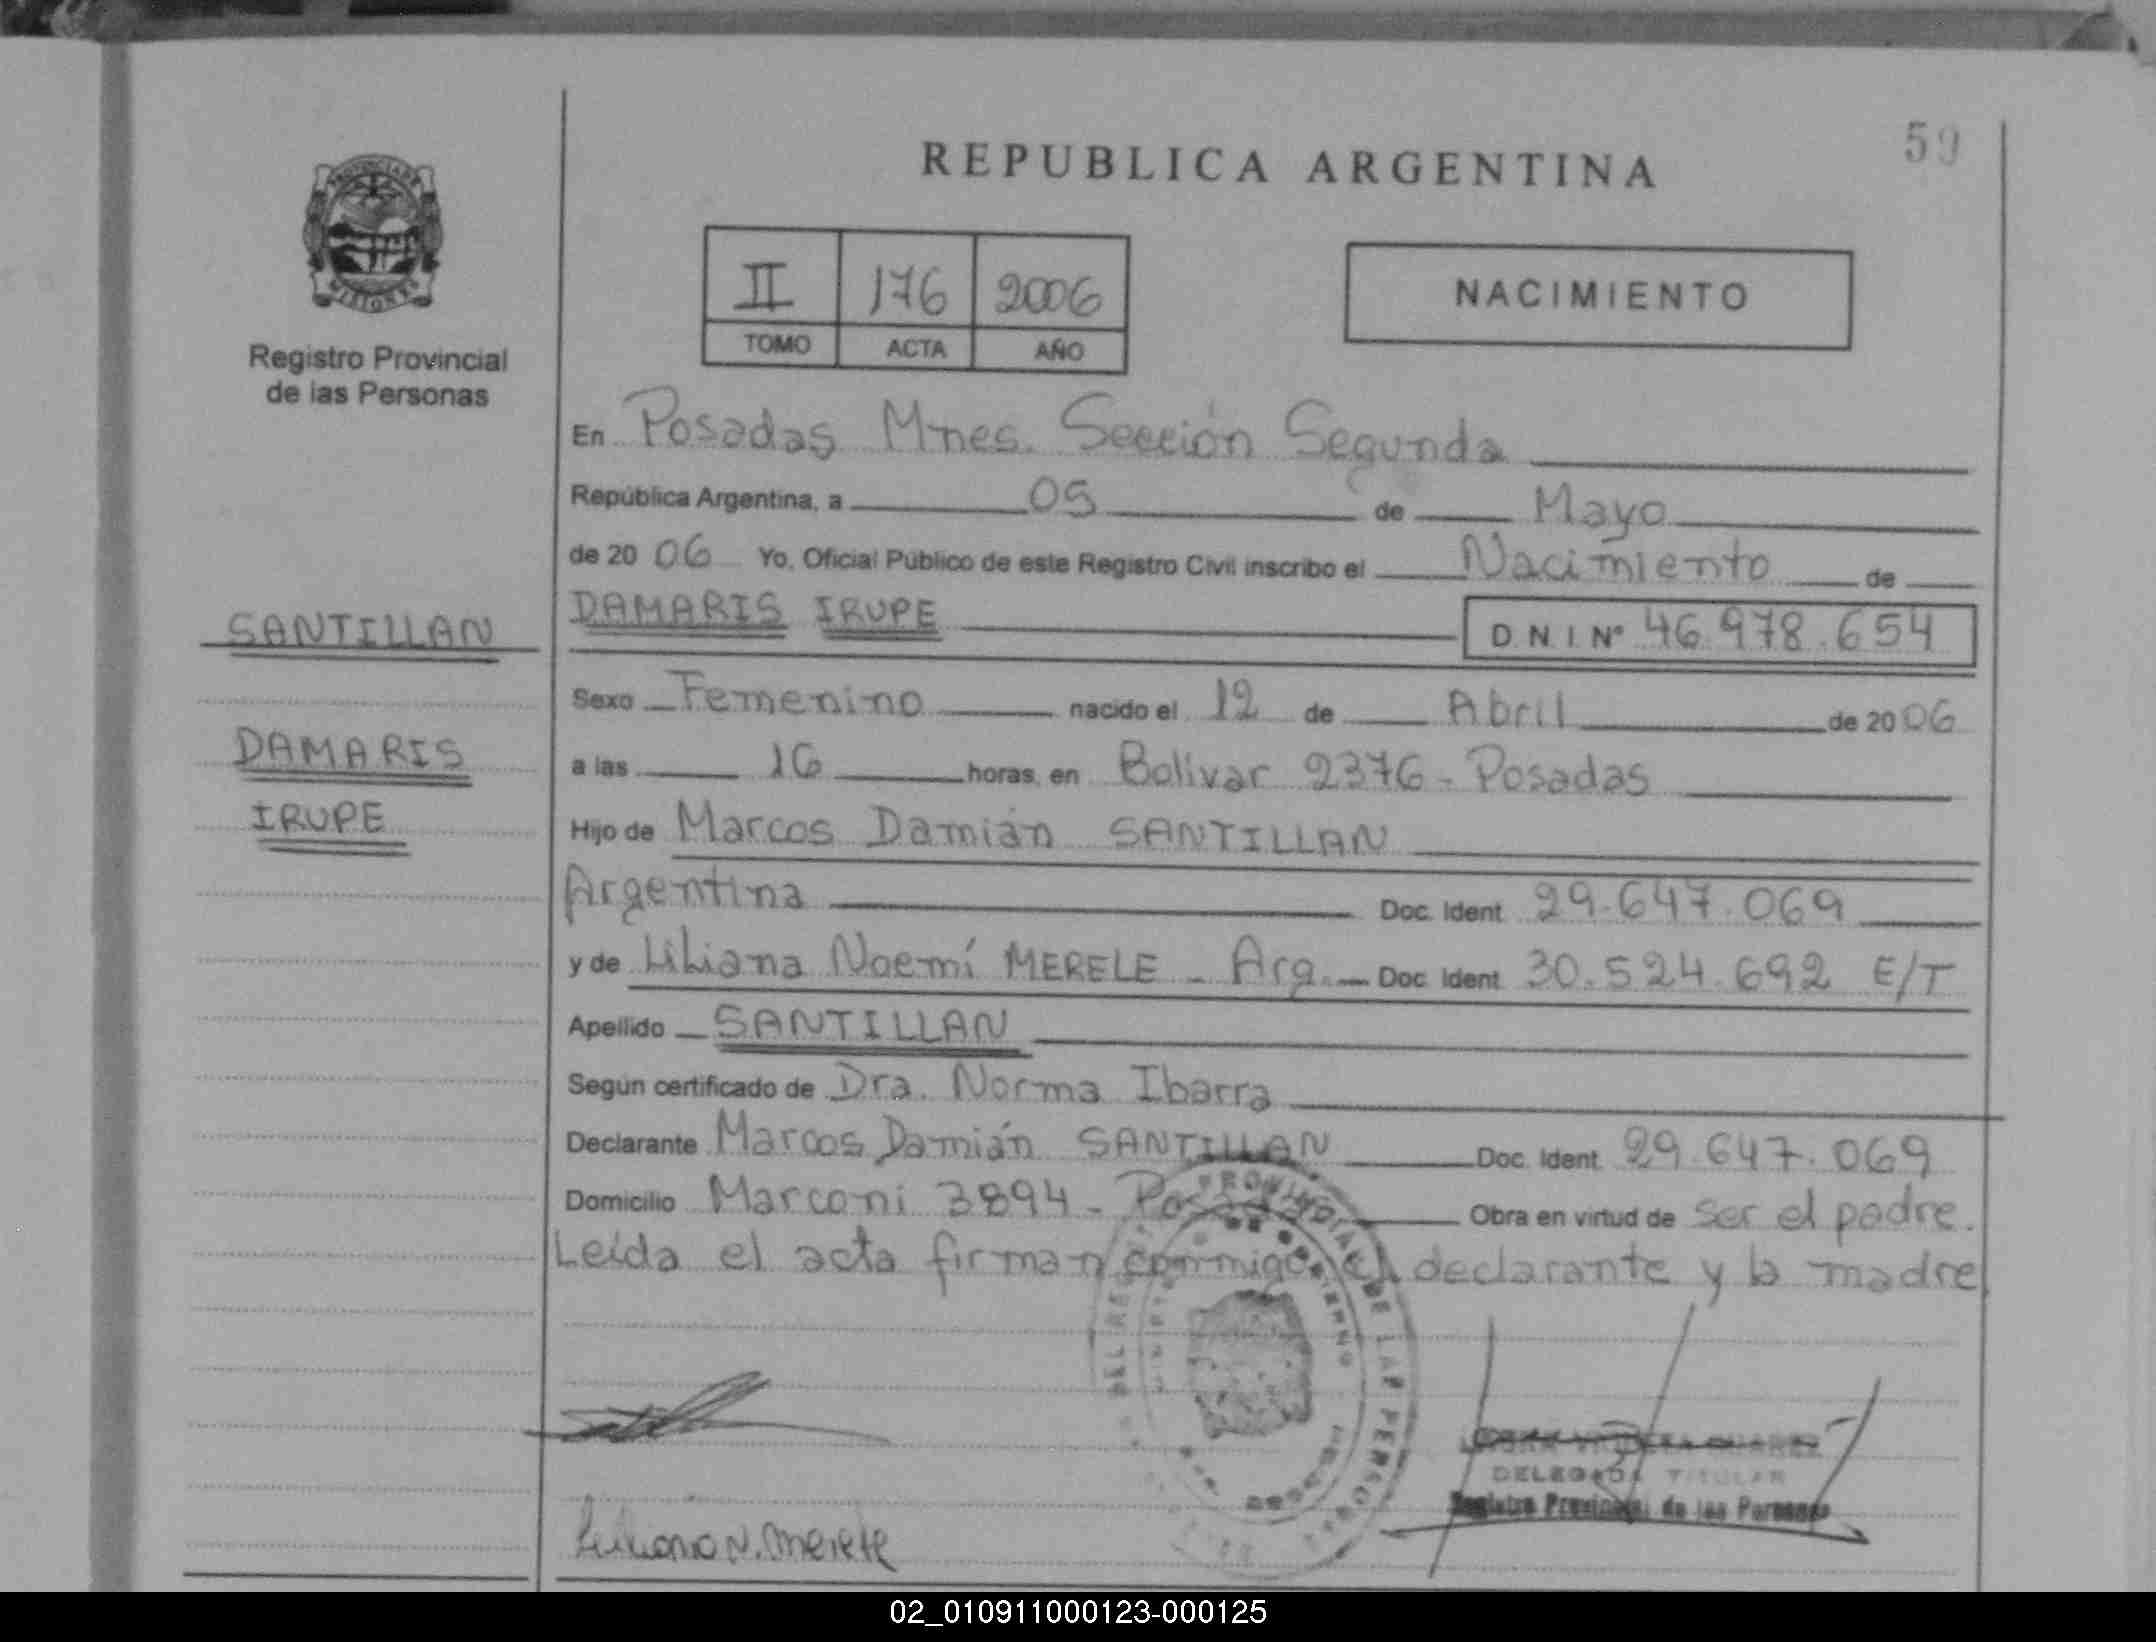 59
REPUBLICA ARGENTINA
PROVINCIA DE
MISIONES
Registro Provincial
de las Personas
II 176 2006
TOMO ACTA AÑO
NACIMIENTO
En Posadas Mnes. Sección Segunda
República Argentina, a 05 de Mayo
de 20 06 Yo, Oficial Público de este Registro Civil inscribo el Nacimiento de
SANTILLAN
DAMARIS IRUPE D.N.I. Nº 46.978.654
Sexo Femenino nacido el 12 de Abril de 20 06
DAMARIS
a las 16 horas, en Bolivar 2376 - Posadas
IRUPE
Hijo de Marcos Damián SANTILLAN
Argentina Doc. Ident 29.647.069
y de Liliana Noemí MERELE - Arg. Doc. Ident 30.524.692 E/T
Apellido SANTILLAN
Según certificado de Dra. Norma Ibarra
Declarante Marcos Damián SANTILLAN Doc. Ident. 29.647.069
Domicilio Marconi 3894 - Posadas Obra en virtud de ser el padre.
Leída el acta firman conmigo el declarante y la madre
DELEGADA TITULAR
Registro Provincial de las Personas
Liliana N. Merele
02_010911000123-000125